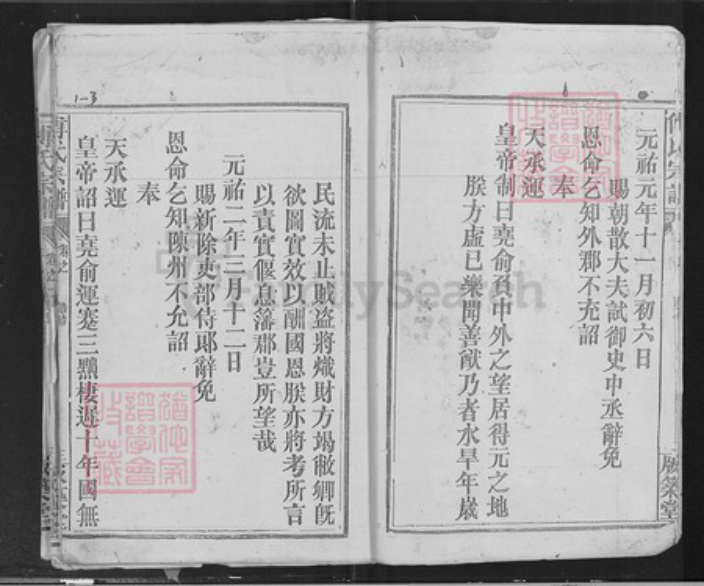 元祐元年十一月初六日
賜朝散大夫試御史中丞辭免
恩命乞知外郡不充詔
奉
天承運
皇帝制曰堯俞負中外之望居得元之地
朕方虛已樂聞善猷乃者水旱年歲
民流未止賊盗將熾財方竭敝卿旣
欲圖實效以酬國恩朕亦將考所言
以責實偃息藩郡豈所望哉
元祐二年三月十二日
賜新除吏部侍郎辭免
恩命乞知陳州不允詔
奉
天承運
皇帝詔曰堯俞運蹇三黜棲遲十年國無
傅氏宗譜
卷之
版築堂
1-3
FamilySearch